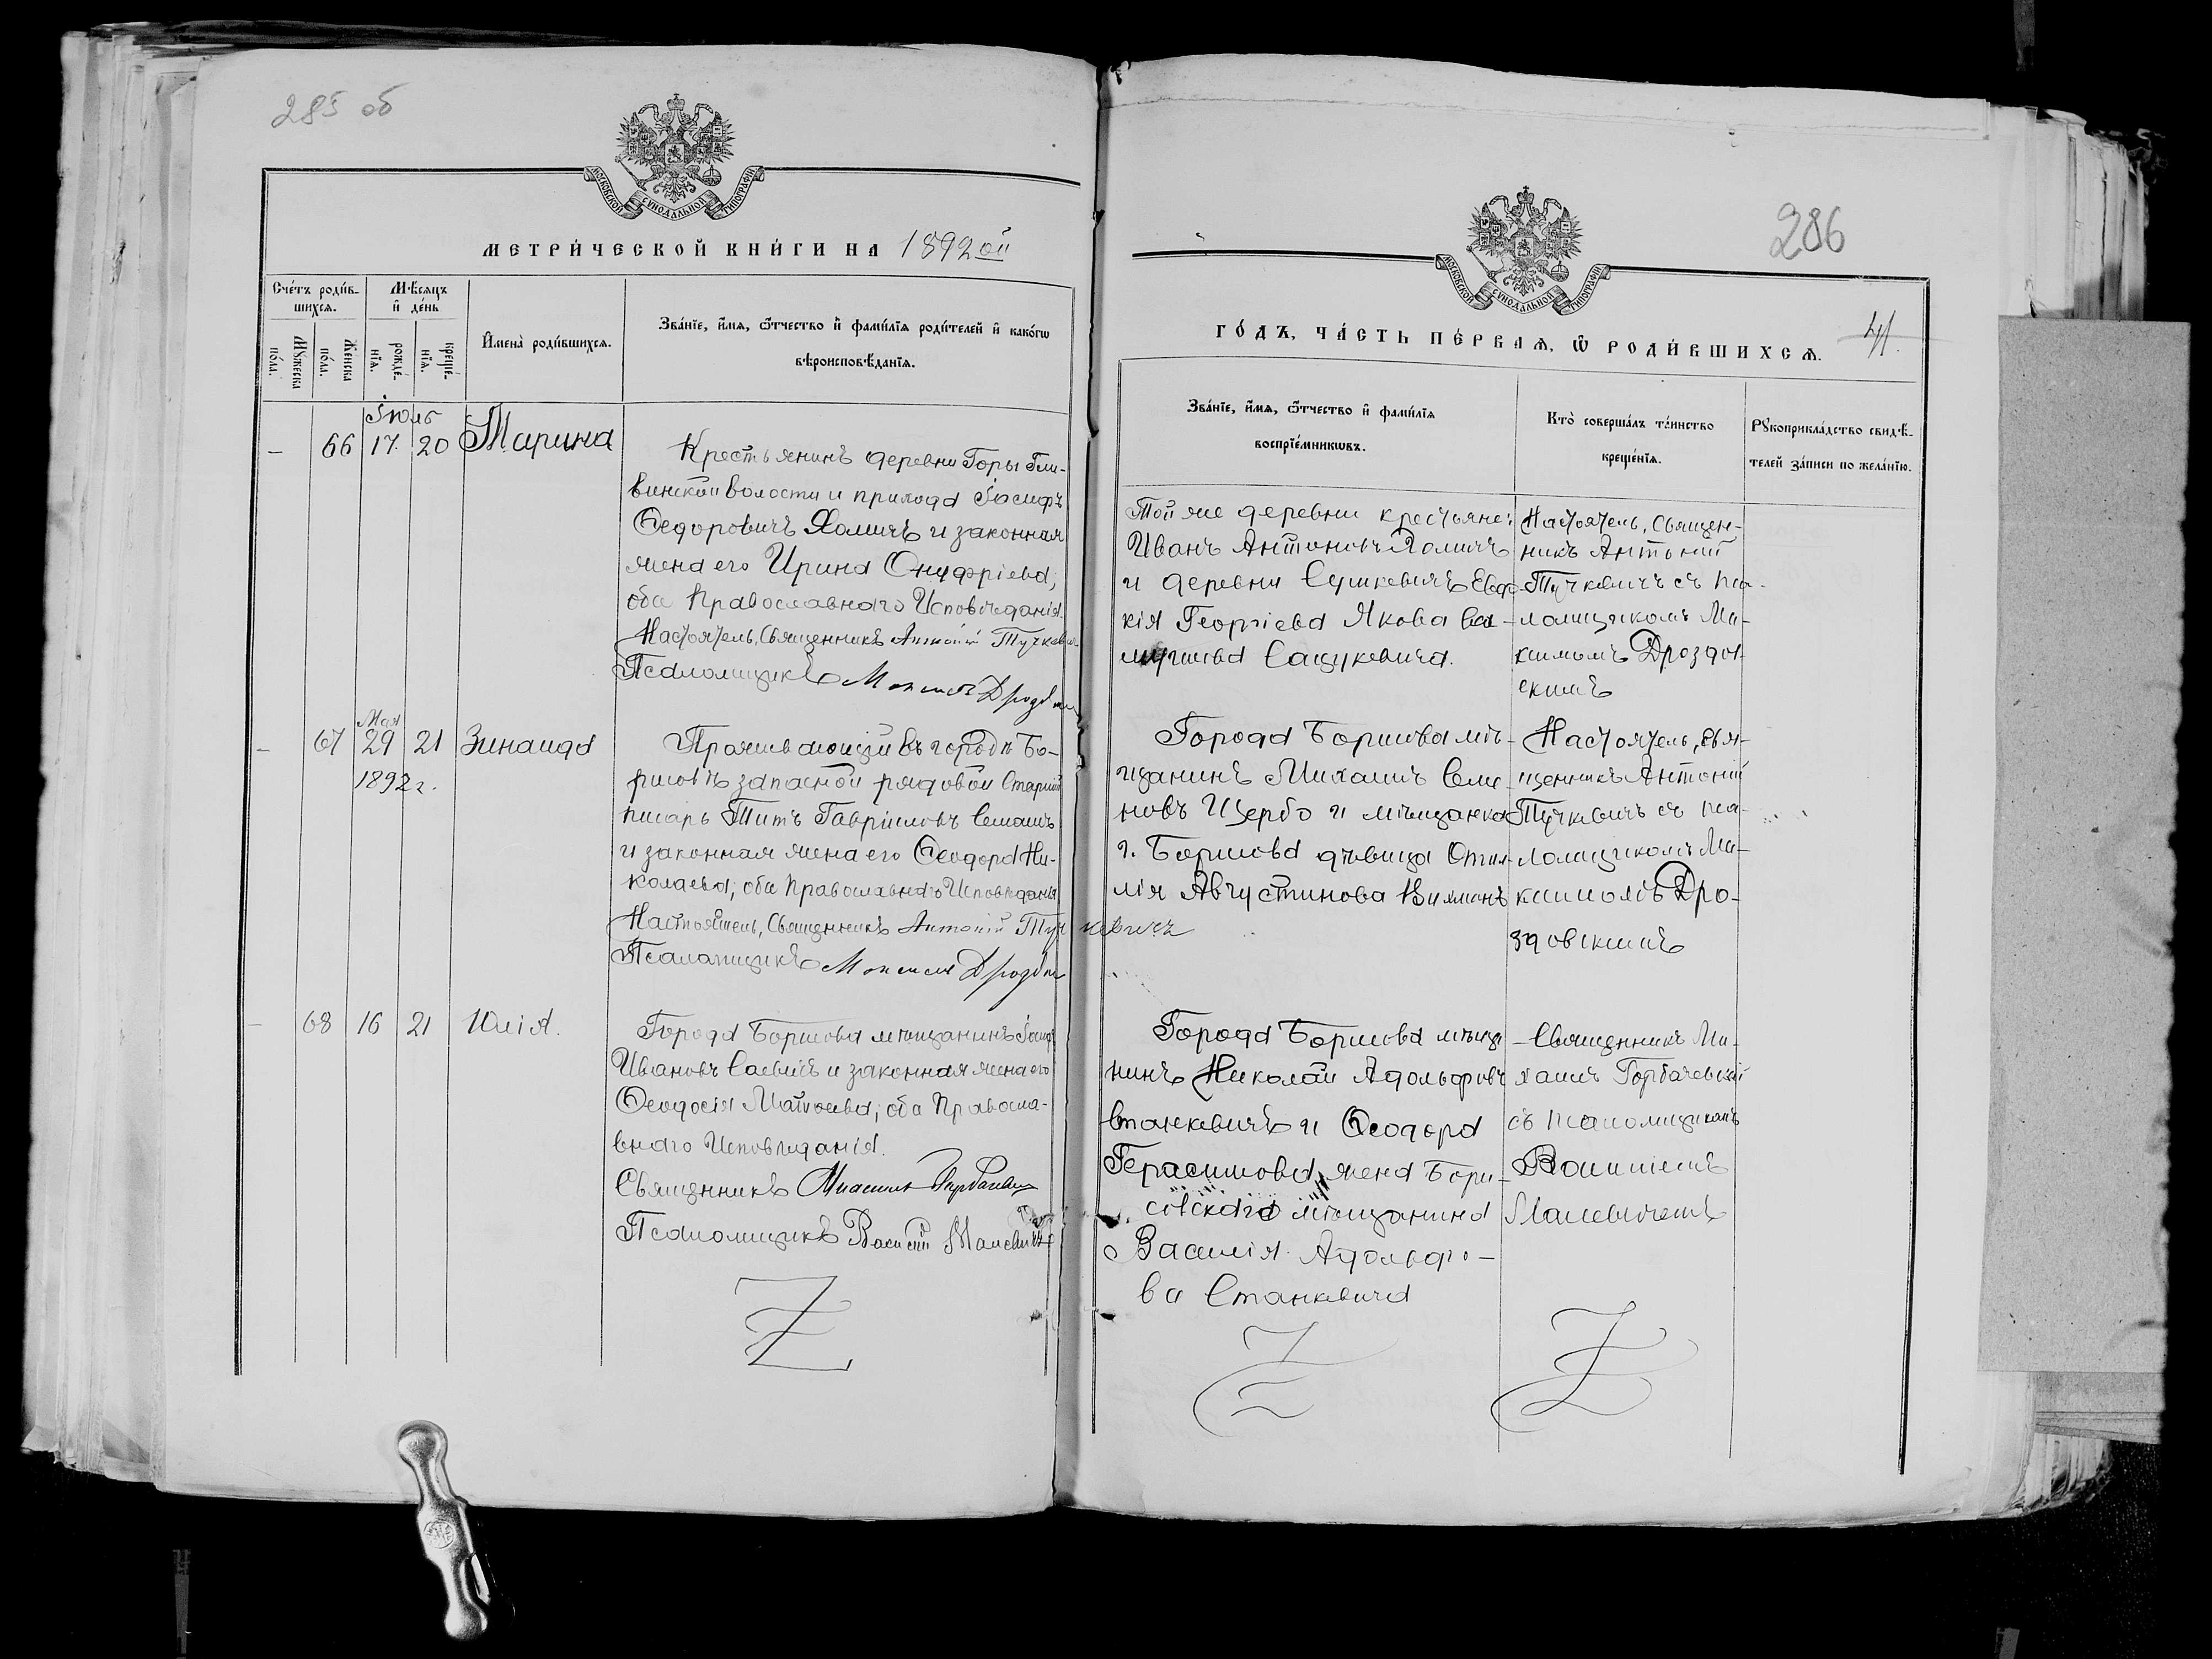 285 об
МОСКОВСКОЙ СѴНОДАЛЬНОЙ ТИПОГРАФІИ
МЕТРИ́ЧЕСКОЙ КНИ́ГИ НА 1892ой
Сче́тъ роди́в-
шихсѧ.
Мѹ́жеска
по́ла.
Же́нска
по́ла.
Мѣ́сѧцъ
и҆ де́нь
рожде́-
нїѧ.
креще́-
нїѧ.
И҆мена̀ роди́вшихсѧ.
Зва́нїе, и҆́мѧ, ѻ҆́тчество и҆ фами́лїѧ роди́телей и҆ како́гѡ
вѣроисповѣ́данїѧ.
Іюль
- 66 17. 20 Марина
Крестьянинъ деревни Горы Гли-
винской волости и прихода Іосифъ
Ѳедоровичъ Хомичъ и законная
жена его Ирина Онуфріева,
оба Православнаго Исповѣданія.
Настоятель, Священникъ Антоній Тучкевич
Псаломщикъ Максимъ Дроздов
Мая
- 67 29 21 Зинаида
1892 г.
Проживающій въ городѣ Бо-
рисовѣ запасной рядовой старшій
писарь Титъ Гавріиловъ Семашъ
и законная жена его Ѳеодора Ни-
колаева, оба Православнаго Исповѣданія
Настоятель, Священникъ Антоній Тучкевичъ
Псаломщикъ Максимъ Дроздов
- 68 16 21 Юлія.
Города Борисова мѣщанинъ Іосифъ
Ивановъ Савичъ и законная жена его
Ѳеодосія Матѳеева, оба Правосла-
внаго Исповѣданія.
Священникъ Михаилъ Горбачевскій
Псаломщикъ Василій Малевичъ
286
МОСКОВСКОЙ СѴНОДАЛЬНОЙ ТИПОГРАФІИ
ГО́ДЪ, ЧА́СТЬ ПЕ́РВАѦ, Ѡ҆ РОДИ́ВШИХСѦ.
41.
Зва́нїе, и҆́мѧ, ѻ҆́тчество и҆ фами́лїѧ
воспрїе́мникѡвъ.
Кто̀ соверша́лъ та́инство
креще́нїѧ.
Рѹкоприкла́дство свидѣ́-
телей за́писи по жела́нїю.
Той же деревни крестьяне:
Иванъ Антоновъ Хомичъ
и деревни Сушкевичъ Евдо-
кія Георгіева Якова Са-
Сацукевича.
Настоятель, Священ-
никъ Антоній
Тучкевичъ съ пса-
ломщикомъ Ма-
ксимомъ Дроздов-
скимъ
Города Борисова мѣ-
щанинъ Михаилъ Семе-
новъ Щербо и мѣщанка
г. Борисова дѣвица Оти-
лія Августинова
Настоятель, Свя-
щенникъ Антоній
Тучкевичъ съ пса-
ломщикомъ Ма-
ксимомъ Дро-
здовскимъ
Города Борисова мѣща-
нинъ Николай Адольфовъ
Станкевичъ и Ѳеодора
Герасимова, жена Бори-
совскаго мѣщанина
Василія Адольфо-
ва Станкевича
Священникъ Ми-
хаилъ Горбачевскій
съ псаломщикомъ
Василіемъ
Малевичемъ